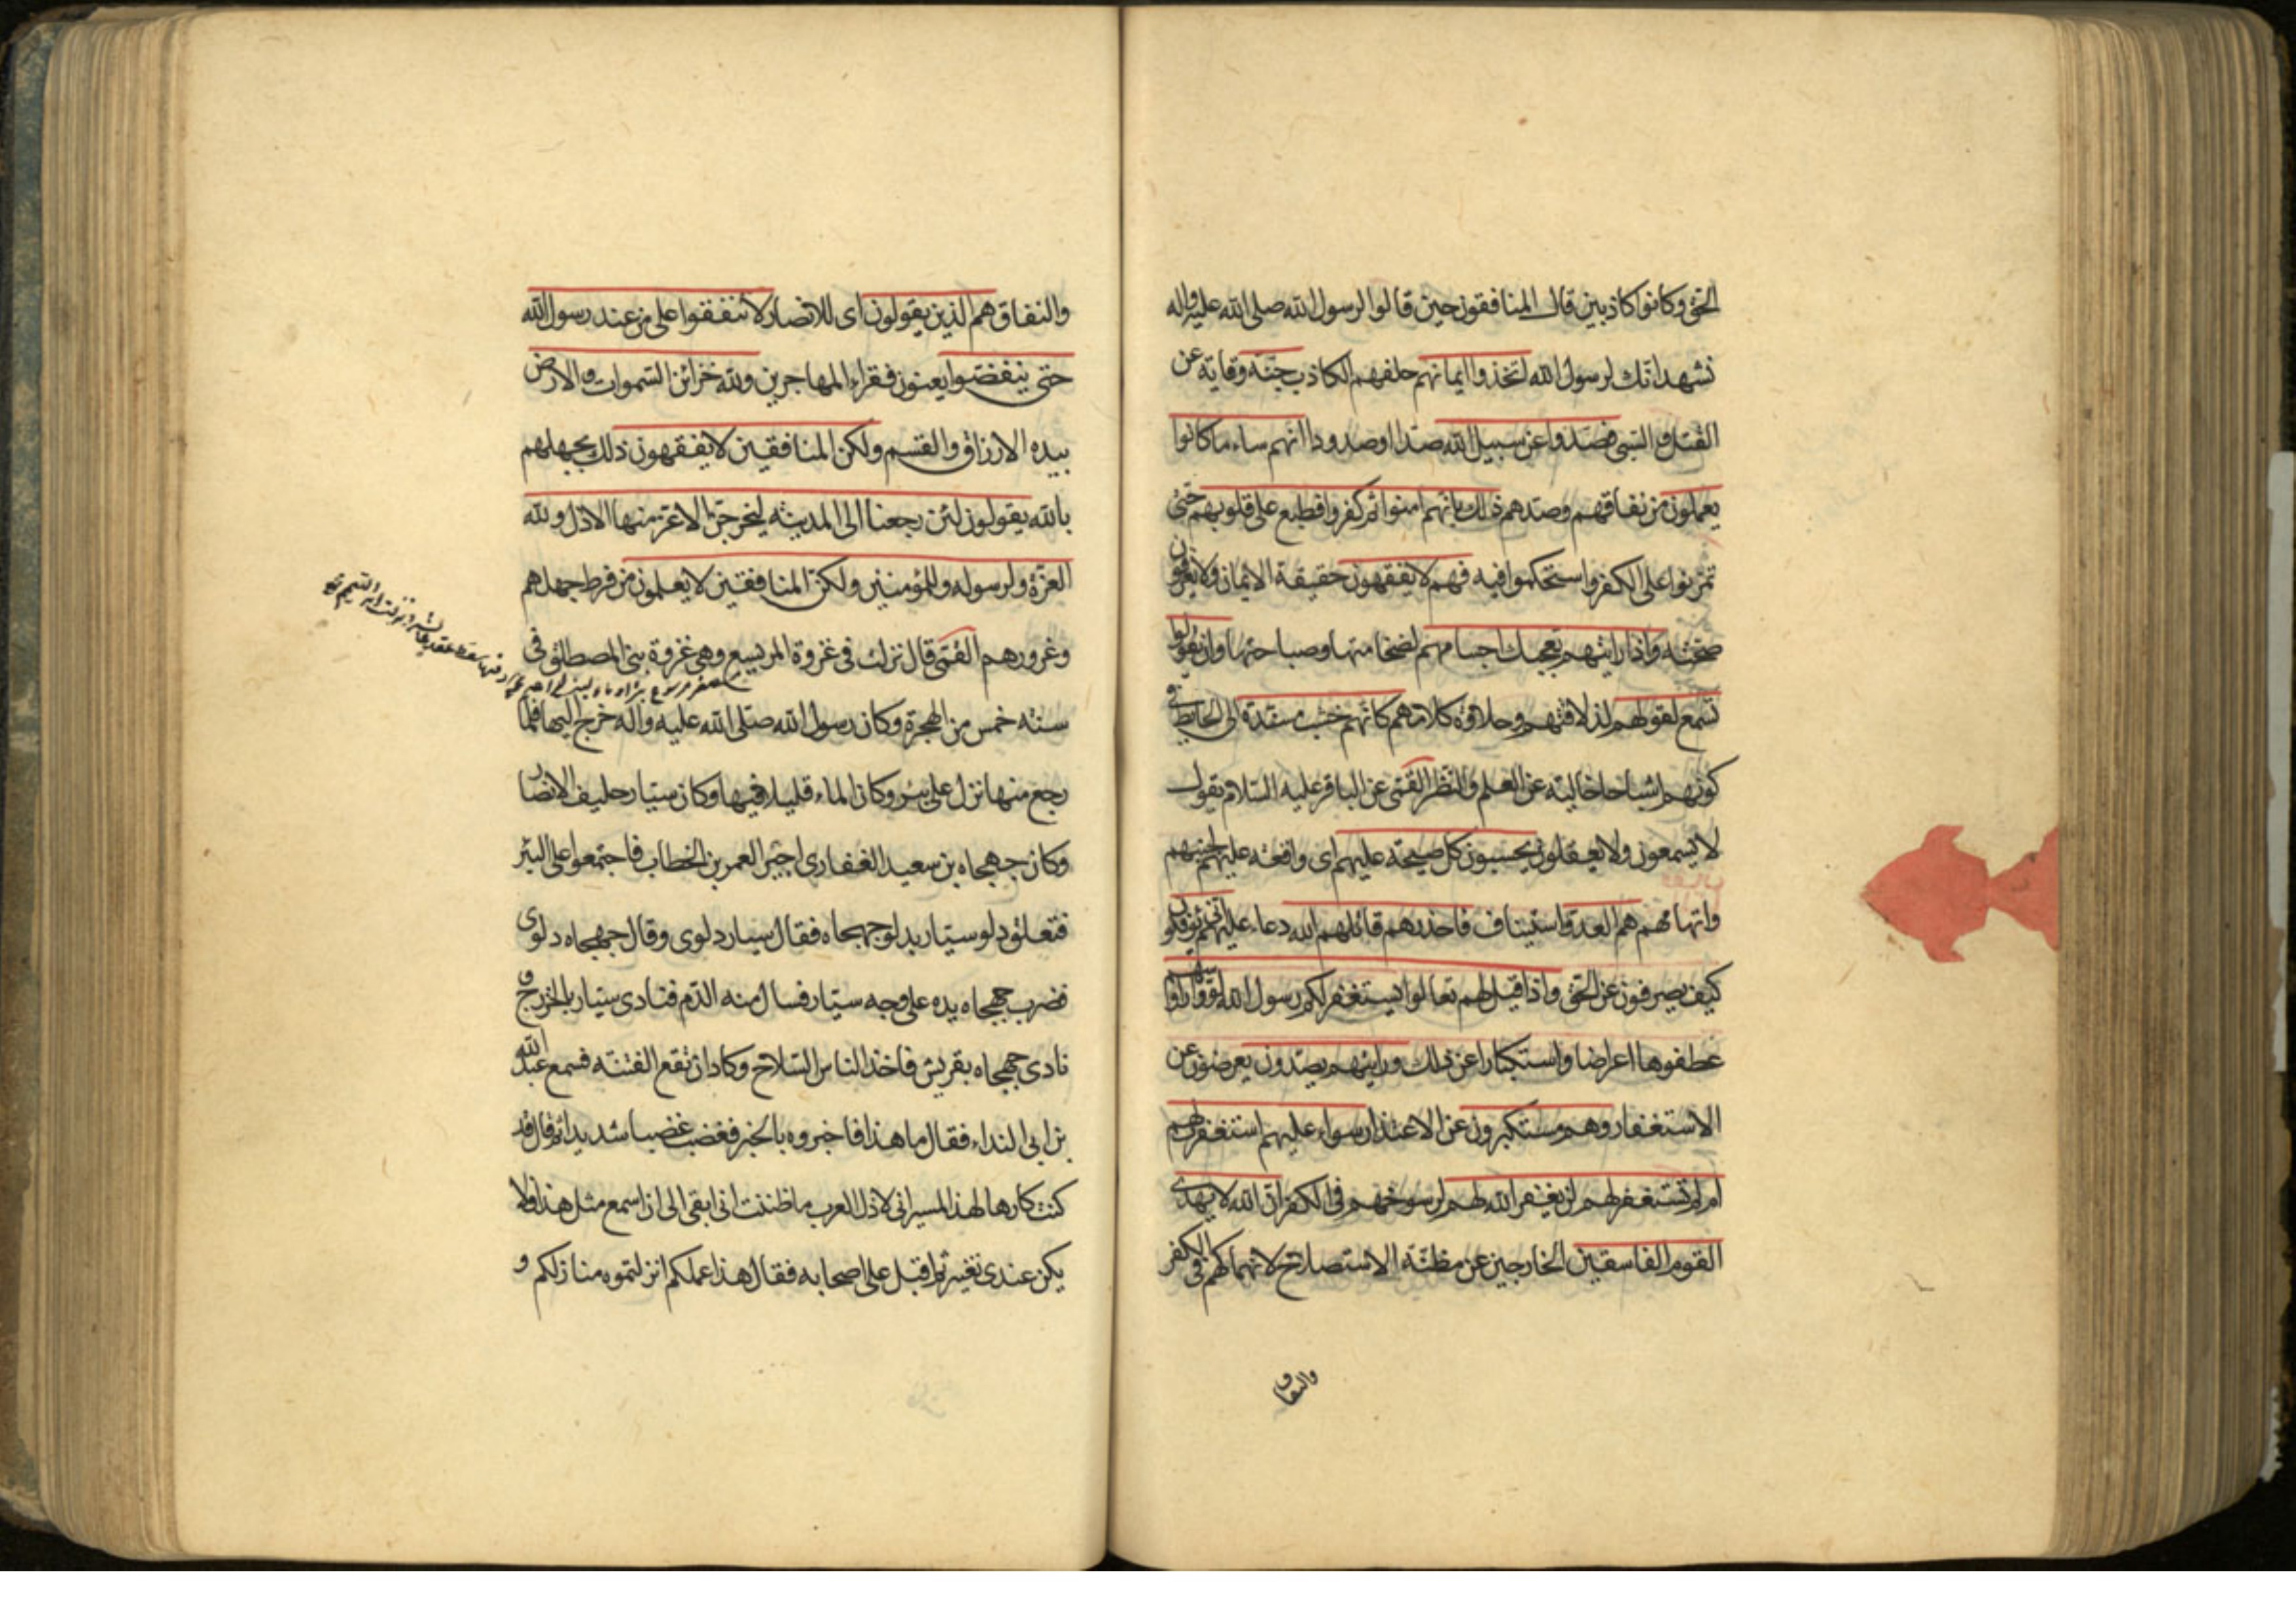 الحق وكانوا كاذبين قال المنافقون حين قالوا لرسول الله صلى الله عليه واله
نشهد انك لرسول الله اتخذوا ايمانهم حلفهم الكاذب جنة وقاية عن
القتل والسبى فصدوا عن سبيل الله صدا او صدودا انهم ساء ما كانوا
يعملون من نفاقهم وصدهم ذلك بانهم امنوا ثم كفروا فطبع على قلوبهم حتى
تمرنوا على الكفر واستحكموا فيه فهم لا يفقهون حقيقة الايمان ولا يعرفون
صحته واذا رايتهم تعجبك اجسامهم لضخامتها وصباحتها وان يقولوا
تسمع لقولهم لذلاقتهم وحلاوة كلامهم كانهم خشب مسندة الى الحايط فى
كونهم اشباحا خالية عن العلم والنظر القمى عن الباقر عليه السلام يقول
لا يسمعون ولا يعقلون يحسبون كل صيحة عليهم اى واقعة عليهم لجبنهم
واتهامهم هم العدو استيناف فاحذرهم قاتلهم الله دعاء عليهم انى يؤفكون
كيف يصرفون عن الحق واذا قيل لهم تعالوا يستغفر لكم رسول الله لووا رؤسهم
عطفوها اعراضا واستكبارا عن ذلك ورايتهم يصدون يعرضون عن
الاستغفار وهم مستكبرون عن الاعتذار سواء عليهم استغفرت لهم
ام لم تستغفر لهم لن يغفر الله لهم لرسوخهم فى الكفر ان الله لا يهدى
القوم الفاسقين الخارجين عن مظنة الاستصلاح لانهماكهم فى الكفر
والنفاق
والنفاق هم الذين يقولون اى للانصار لا تنفقوا على من عند رسول الله
حتى ينفضوا يعنون فقراء المهاجرين ولله خزائن السموات والارض
بيده الارزاق والقسم ولكن المنافقين لا يفقهون ذلك بجهلهم
بالله يقولون لئن رجعنا الى المدينة ليخرجن الاعز منها الاذل ولله
العزة ولرسوله وللمؤمنين ولكن المنافقين لا يعلمون من فرط جهلهم
وغرورهم القمى قال نزلت فى غزوة المريسيع وهى غزوة بنى المصطلق فى
سنة خمس من الهجرة وكان رسول الله صلى الله عليه واله خرج اليها فلما
رجع منها نزل على بئر وكان الماء قليلا فيها وكان سيار حليف الانصار
وكان جهجاه بن سعيد الغفارى اجيرا لعمر بن الخطاب فاجتمعوا على البئر
فتعلق دلو سيار بدلو جهجاه فقال سيار دلوى وقال جهجاه دلوى
فضرب جهجاه يده على وجه سيار فسال منه الدم فنادى سيار بالخزرج و
نادى جهجاه بقريش فاخذ الناس السلاح وكاد ان تقع الفتنة فسمع عبد الله
بن ابى النداء فقال ما هذا فاخبروه بالخبر فغضب غضبا شديدا ثم قال قد
كنت كارها لهذا المسير انى لاذل العرب ما ظننت انى ابقى الى ان اسمع مثل هذا فلا
يكن عندى تغيير ثم اقبل على اصحابه فقال هذا عملكم انزلتموه منازلكم و